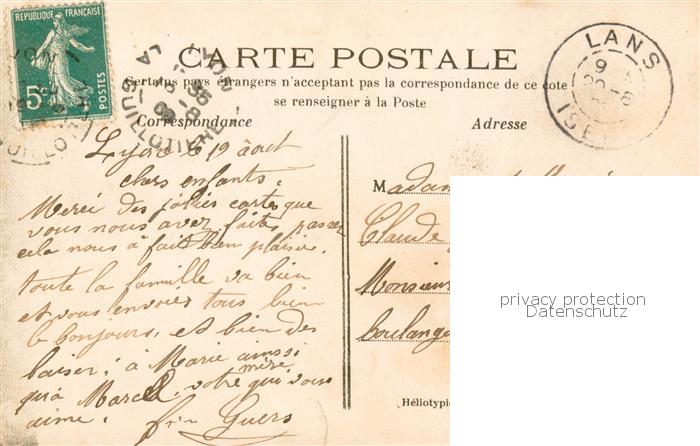 REPUBLIQUE FRANÇAISE
5c
POSTES
LYON
LA GUILLOTIERE
LANS
ISE
CARTE POSTALE
Certains pays étrangers n'acceptent pas la correspondance de ce cote
se renseigner à la Poste
Correspondance
Adresse
Lyon le 19 août
chers enfants,
Merci des jolies cartes que
vous nous avez faites passer
cela nous à fait bien plaisir.
toute la famille va bien
et vous envoies tous bien
le bonjours, et bien des
baiser, à Marie ainssi
qu'à Marcel. votre mère qui vous
aime.
Madam
Claude
Monsieur
boulange
Héliotypie
privacy protection
Datenschutz